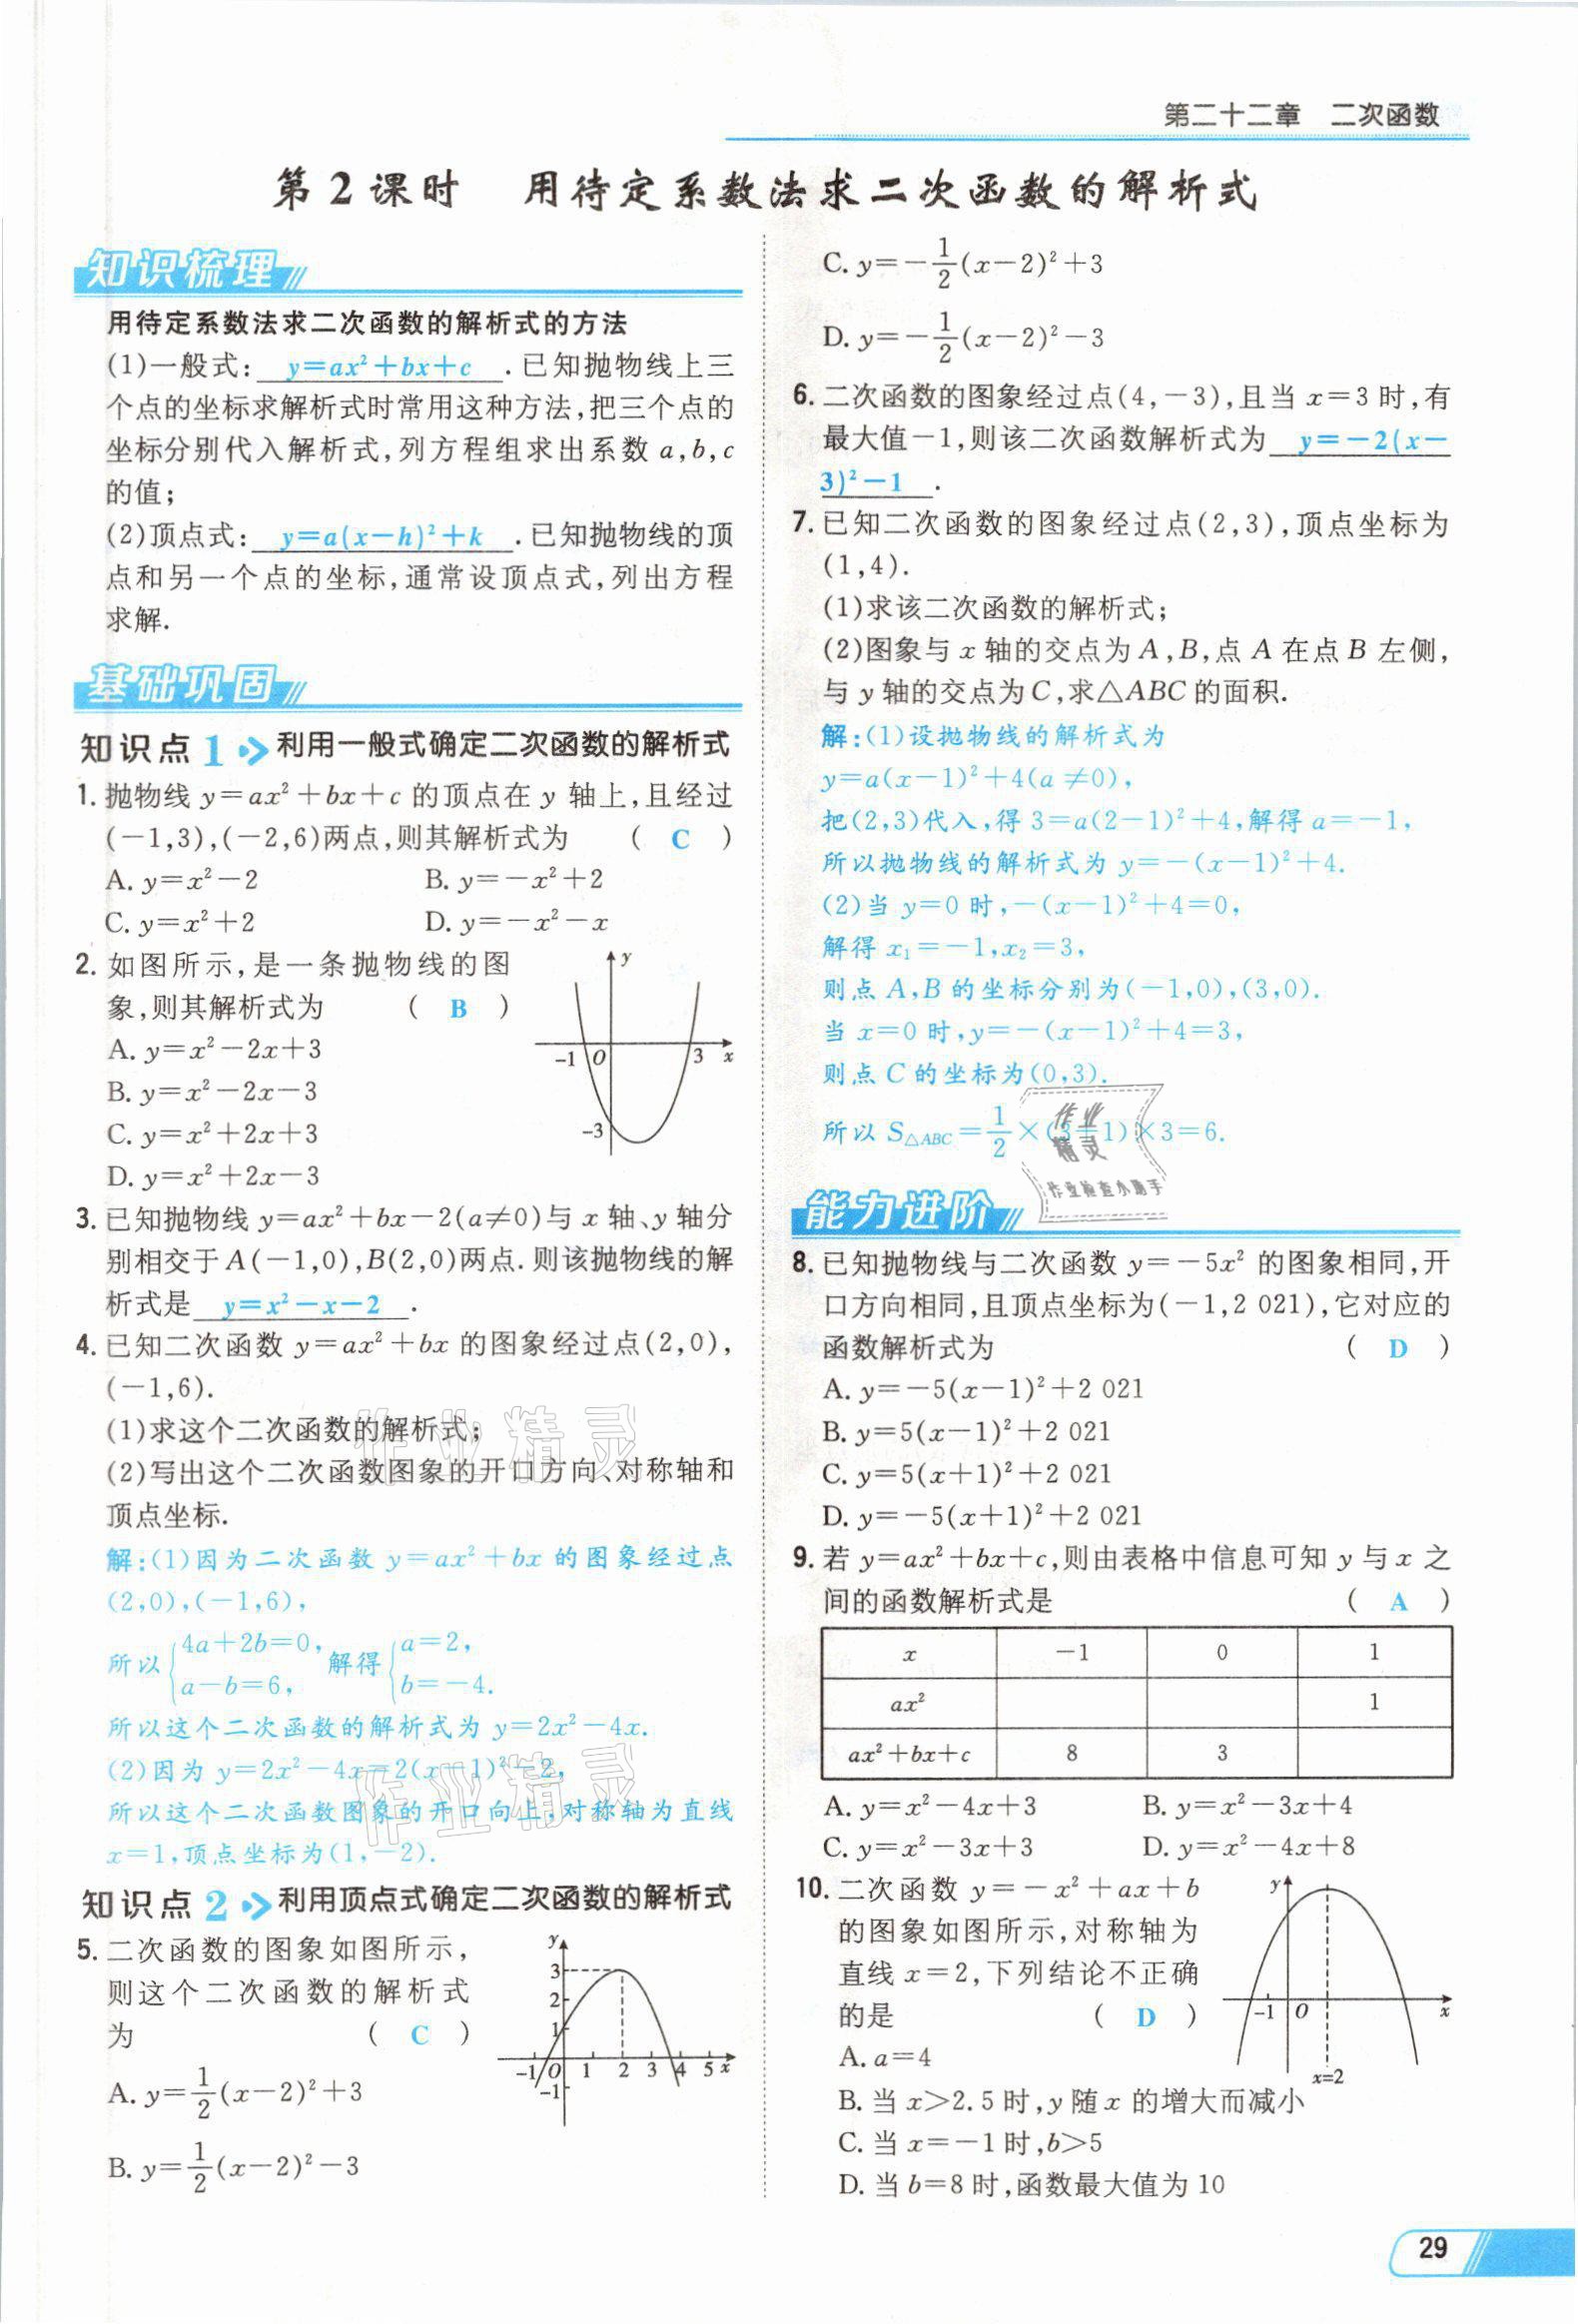 第二十二章 二次函数
第2课时 用待定系数法求二次函数的解析式
知识梳理
用待定系数法求二次函数的解析式的方法
(1)一般式: y=ax²+bx+c .已知抛物线上三
个点的坐标求解析式时常用这种方法,把三个点的
坐标分别代入解析式,列方程组求出系数 a,b,c
的值;
(2)顶点式: y=a(x-h)²+k .已知抛物线的顶
点和另一个点的坐标,通常设顶点式,列出方程
求解.
基础巩固
知识点 1 利用一般式确定二次函数的解析式
1. 抛物线 y=ax²+bx+c 的顶点在 y 轴上,且经过
(-1,3),(-2,6)两点,则其解析式为 ( C )
A. y=x²-2 B. y=-x²+2
C. y=x²+2 D. y=-x²-x
2. 如图所示,是一条抛物线的图
象,则其解析式为 ( B )
A. y=x²-2x+3
B. y=x²-2x-3
C. y=x²+2x+3
D. y=x²+2x-3
y
-1 O 3 x
-3
3. 已知抛物线 y=ax²+bx-2(a≠0)与 x 轴、y 轴分
别相交于 A(-1,0),B(2,0)两点.则该抛物线的解
析式是 y=x²-x-2 .
4. 已知二次函数 y=ax²+bx 的图象经过点(2,0),
(-1,6).
(1)求这个二次函数的解析式;
(2)写出这个二次函数图象的开口方向、对称轴和
顶点坐标.
解:(1)因为二次函数 y=ax²+bx 的图象经过点
(2,0),(-1,6),
所以{4a+2b=0, a-b=6, 解得{a=2, b=-4.
所以这个二次函数的解析式为 y=2x²-4x.
(2)因为 y=2x²-4x=2(x-1)²-2,
所以这个二次函数图象的开口向上,对称轴为直线
x=1,顶点坐标为(1,-2).
作业精灵
作业精灵
知识点 2 利用顶点式确定二次函数的解析式
5. 二次函数的图象如图所示,
则这个二次函数的解析式
为 ( C )
y
3
2
1
-1 O 1 2 3 4 5 x
-1
A. y=1/2(x-2)²+3
B. y=1/2(x-2)²-3
C. y=-1/2(x-2)²+3
D. y=-1/2(x-2)²-3
6. 二次函数的图象经过点(4,-3),且当 x=3 时,有
最大值-1,则该二次函数解析式为 y=-2(x-
3)²-1 .
7. 已知二次函数的图象经过点(2,3),顶点坐标为
(1,4).
(1)求该二次函数的解析式;
(2)图象与 x 轴的交点为 A,B,点 A 在点 B 左侧,
与 y 轴的交点为 C,求△ABC 的面积.
解:(1)设抛物线的解析式为
y=a(x-1)²+4(a≠0),
把(2,3)代入,得 3=a(2-1)²+4,解得 a=-1,
所以抛物线的解析式为 y=-(x-1)²+4.
(2)当 y=0 时,-(x-1)²+4=0,
解得 x₁=-1,x₂=3,
则点 A,B 的坐标分别为(-1,0),(3,0).
当 x=0 时,y=-(x-1)²+4=3,
则点 C 的坐标为(0,3).
所以 S△ABC=1/2×(3+1)×3=6.
作业
精灵
作业检查小助手
能力进阶
8. 已知抛物线与二次函数 y=-5x² 的图象相同,开
口方向相同,且顶点坐标为(-1,2 021),它对应的
函数解析式为 ( D )
A. y=-5(x-1)²+2 021
B. y=5(x-1)²+2 021
C. y=5(x+1)²+2 021
D. y=-5(x+1)²+2 021
9. 若 y=ax²+bx+c,则由表格中信息可知 y 与 x 之
间的函数解析式是 ( A )
x -1 0 1
ax² 1
ax²+bx+c 8 3
A. y=x²-4x+3 B. y=x²-3x+4
C. y=x²-3x+3 D. y=x²-4x+8
10. 二次函数 y=-x²+ax+b
的图象如图所示,对称轴为
直线 x=2,下列结论不正确
的是 ( D )
y
-1 O x
x=2
A. a=4
B. 当 x>2.5 时,y 随 x 的增大而减小
C. 当 x=-1 时,b>5
D. 当 b=8 时,函数最大值为 10
29